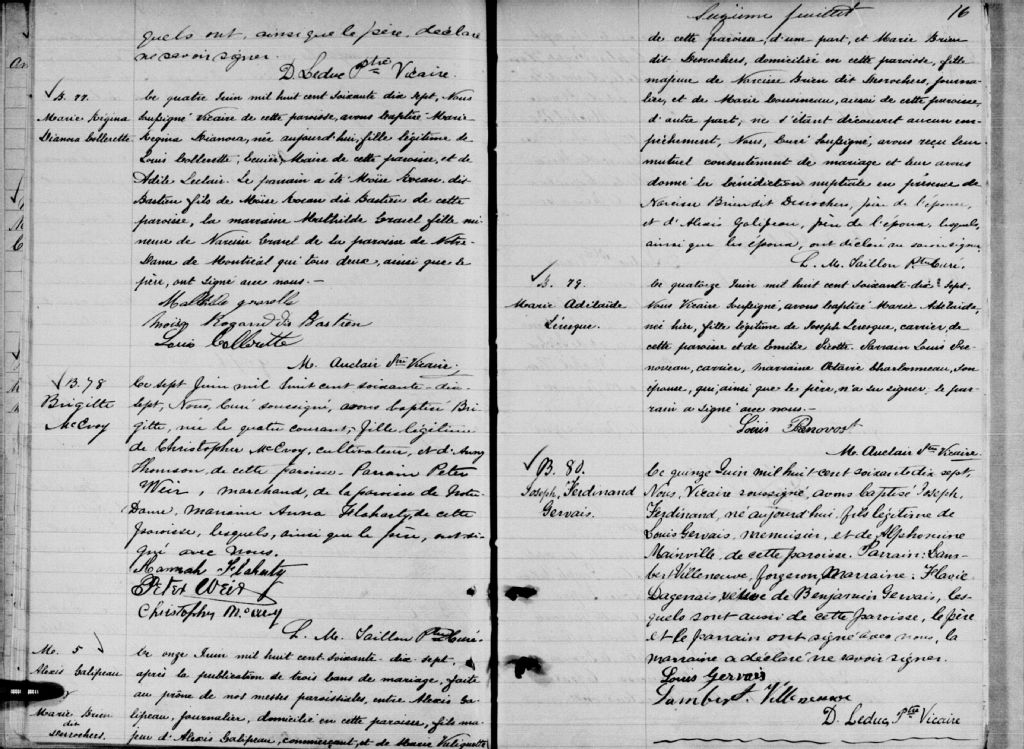 quels ont, ainsi que le père, déclaré
ne savoir signer.
D. Leduc Ptre Vicaire.
B. 77
Marie Regina
Dianora Collerette
Ce quatre Juin mil huit cent soixante dix sept, Nous
soussigné Vicaire de cette paroisse, avons baptisé Marie
Regina Dianora, née aujourd'hui, fille légitime de
Louis Collerette, Ecuier, Maire de cette paroisse, et de
Adile Leclair. Le parrain a été Moïse Rocan dit
Bastien fils de Moïse Rocan dit Bastien de cette
paroisse, la marraine Mathilde Gravel fille mi-
neure de Narcisse Gravel de la paroisse de Notre-
Dame de Montréal qui tous deux, ainsi que le
père, ont signé avec nous.—
Mathilde gravelle
Bastien
Louis Collerette
M. Auclair Ptre Vicaire.
B. 78
Brigitte
McEvoy
Ce sept Juin mil huit cent soixante-dix-
sept, Nous, Curé soussigné, avons baptisé Bri-
gitte, née le quatre courant, fille légitime
de Christopher McEvoy, cultivateur, & d'Anny
Thomson, de cette paroisse. Parrain Peter
Weir, marchand, de la paroisse de Notre
Dame, marraine Anna Flaharty, de cette
paroisse, lesquels, ainsi que le père, ont si-
gné avec nous.
Hannah Flaharty
Peter Weir
Christopher McEvoy
L. M. Taillon Ptre Curé
M. 5
Alexis Galipeau
&
Marie Brien
dit
Desrochers.
Ce onze Juin mil huit cent soixante-dix sept,
après la publication de trois bans de mariage, faite
au prône de nos messes paroissiales, entre Alexis Ga-
lipeau, journalier, domicilié en cette paroisse, fils ma-
jeur d'Alexis Galipeau, commerçant, et de Marie
Seizième feuillet
16
de cette paroisse, d'une part, et Marie Brien
dit Desrochers, domiciliée en cette paroisse, fille
majeure de Narcisse Brien dit Desrochers, journa-
lier, et de Marie Cousineau, aussi de cette paroisse,
d'autre part, ne s'étant découvert aucun em-
pêchement, Nous, Curé soussigné, avons reçu leur
mutuel consentement de mariage et leur avons
donné la bénédiction nuptiale en présence de
Narcisse Brien dit Desrochers, père de l'épouse,
et d'Alexis Galipeau, père de l'époux, lesquels,
ainsi que les époux, ont déclaré ne savoir signer.
L. M. Taillon Ptre Curé.
B. 79.
Marie Adélaïde
Lévesque.
Ce quatorze Juin mil huit cent soixante-dix-sept,
Nous Vicaire soussigné, avons baptisé Marie Adélaïde,
née hier, fille légitime de Joseph Levesque, carrier, de
cette paroisse et de Emilie Picotte. Parrain Louis Pre-
noveau, carrier, marraine Octavie Charbonneau, son
épouse, qui, ainsi que le père, n'a su signer, le par-
rain a signé avec nous.—
Louis Prenovost
M. Auclair Ptre Vicaire.
B. 80.
Joseph, Ferdinand
Gervais.
Ce quinze Juin mil huit cent soixante dix sept,
Nous, Vicaire soussigné, avons baptisé Joseph,
Ferdinand, né aujourd'hui, fils légitime de
Louis Gervais, menuisier, et de Alphonsine
Mainville, de cette paroisse. Parrain: Lam-
bert Villeneuve, forgeron, Marraine: Flavie
Dagenais, veuve de Benjamin Gervais, les-
quels sont aussi de cette paroisse, le père
et le parrain ont signé avec nous, la
marraine a déclaré ne savoir signer.
Louis Gervais
Lambert Villeneuve
D. Leduc, Ptre Vicaire